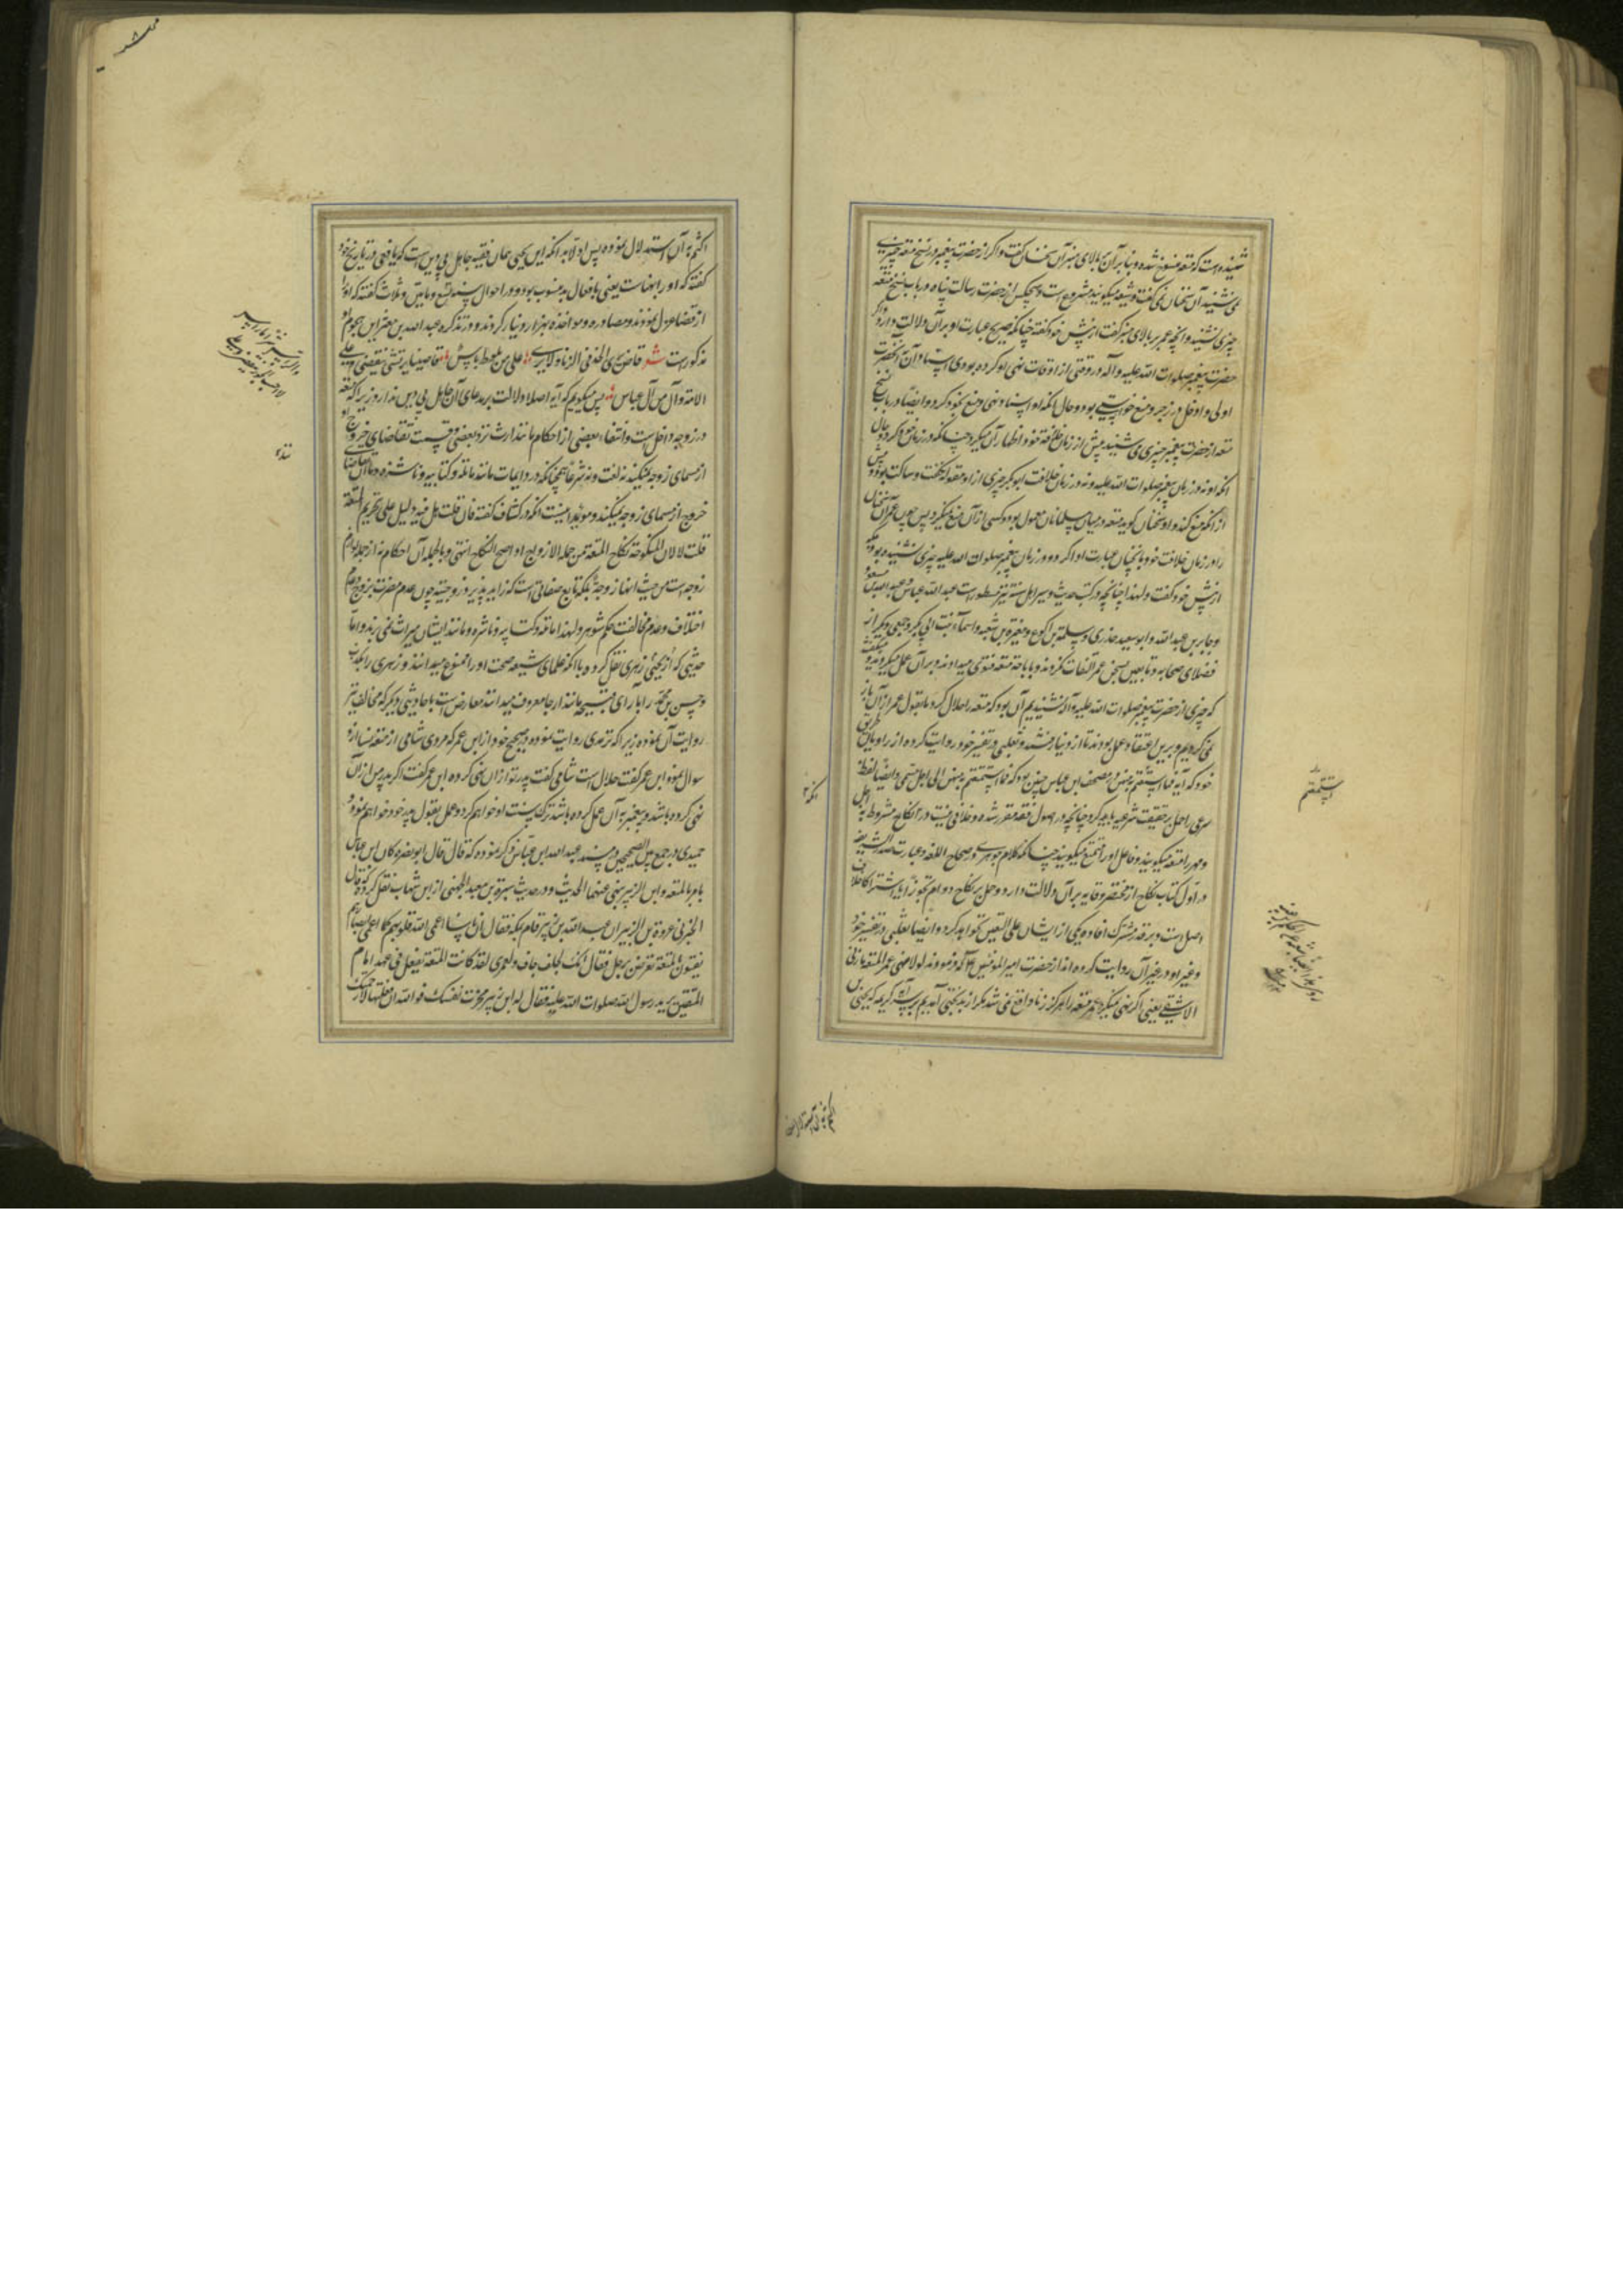 شنیده است که متعه منسوخ شده و بنابر آن بر بالای منبر آن سخنان گفت و اگر از حضرت پیغمبر در نسخ متعه چیزی
نمی شنید آن سخنان نمی گفت و شیعه میگویند متعه مشروع است و هیچکس از حضرت رسالت پناه در باب نسخ متعه
چیزی نشنیده و آنچه عمر بر بالای منبر گفت از پیش خود گفته چنانکه صریح عبارت او بر آن دلالت دارد و اگر
حضرت پیغمبر صلوات الله علیه و آله در وقتی از اوقات نهی او کرده بودی اسناد آن به آنحضرت
اولی و ادخل در زجر و منع خواستی بود و حال آنکه او اسناد نهی و منع بخود کرد و ایضا در باب نسخ
متعه از حضرت پیغمبر چیزی می شنید پیش از زمان خلافت خود اظهار آن میکرد چنانکه در زمان خود کرد و حال
آنکه او نه در زمان پیغمبر صلوات الله علیه و نه در زمان خلافت ابو بکر چیزی از این مقوله نگفت و ساکت بود و پیش
از آنکه منع کند و او سخنان گوید متعه در میان مسلمانان معمول بود و کسی از آن منع نمیکرد پس چون عمر آن سخنان
را در زمان خلافت خود بآنچنان عبارت ادا کرد و در زمان پیغمبر صلوات الله علیه چیزی نشنیده بود بلکه
از پیش خود گفت و لهذا چنانچه در کتب حدیث و سیر اهل سنه نیز مسطور است عبد الله عباس و عبد الله مسعود
و جابر بن عبد الله و ابو سعید خدری و سلمة بن اکوع و مغیرة بن شعبه و اسماء بنت ابی بکر و جمعی دیگر از
فضلای صحابه و تابعین بسخن عمر التفات نکردند و باباحة متعه فتوی میدادند و بر آن عمل میکردند و میگفتند
که چیزی از حضرت پیغمبر صلوات الله علیه و آله شنیدیم آن بود که متعه را حلال کرد ما بقول عمر از آن باز
نمی گردیم و برین اعتقاد و عمل بودند تا از دنیا رفتند و ثعلبی در تفسیر خود روایت کرده از راویان طریق
خود که آیه فما استمتعتم به منهن در مصحف ابن عباس چنین بود که فما استمتعتم به منهن الی اجل مسمی و ایضا لفظ
شرعی را حمل بر حقیقت شرعیه باید کرد چنانچه در اصول فقه مقرر شده و خلافی نیست در آنکه نکاح مشروط به اجل
و مهر را متعه میگویند و فاعل او را متمتع میگویند چنانکه کلام جوهری در صحاح اللغه و عبارت صدر الشریعه
در اول کتاب نکاح از مختصر وقایه بر آن دلالت دارد و حمل بر نکاح دوام تجوز یا اشتراک خلاف
اصل است و بر قدر مشترک افاده یکی از ایشان علی التعیین نخواهد کرد و ایضا ثعلبی در تفسیر خود
و غیر او در غیر آن روایت کرده اند از حضرت امیر المؤمنین که فرمودند لولا نهی عمر المتعه ما زنی
الا شقی یعنی اگر نهی نمیکرد عمر متعه را هرگز زنا واقع نمی شد مگر از بدبختی آمدیم بر سر آیه کریمه که یحیی بن
استمتعتم
اکثم به آن استدلال نموده پس اولا به آنکه این یحیی همان فقیه جاهل بی دین است که یافعی در تاریخ خود
گفته که او را بهنات یعنی بافعال بد منسوب بود و در احوال سنه تسع و مایتین و ثلاث گفته که او را
از قضا عزل نمودند و مصادره و مواخذه بهزار دینار کردند و در تذکره عبد الله بن معتز این هجو او
مذکور است شعر قاض یری الحد فی الزنا و لا یری علی من یلوط باس
الامة وال من آل عباس پس میگویم که آیه اصلا دلالت بر مدعای آن جاهل بی دین ندارد زیرا که متعه
در زوجه داخل است و انتفاء بعضی از احکام مانند ارث نزد بعضی و قسمت تقاضای خروج او
از مسمای زوجه نمیکند نه لغت و نه شرعا همچنانکه در دایمات مانند قاتله و کتابیه و ناشزه
خروج از مسمای زوجه نمیکند و موید اینست آنکه در کشاف گفته فان قلت هل فیه دلیل علی تحریم المتعة
قلت لا لان المنکوحة نکاح المتعة من جملة الازواج اذا صح النکاح انتهی و بالجمله آن احکام نه از جمله لوازم
زوجه است من حیث انها زوجة بلکه تابع صفاتی است که زاید بر زوجیت چون عدم مضرت بزوج و عدم
اختلاف و عدم مخالفت حکم شوهر و لهذا قاتله و کتابیه و ناشزه و مانند ایشان میراث نمی برند و اما
حدیثی که از یحیی زهری نقل کرد و با آنکه علمای شیعه صحت او را ممنوع میدانند و زهری را بکذب
و حسن بن محمد را بآرای قبیحه مانند ارجا معروف میدانند معارض است با احادیثی دیگر که مخالف نیز
روایت آن نموده زیرا که ترمدی روایت نموده در صحیح خود از ابن عمر که مردی شامی از متعه نسا از او
سوال نمود ابن عمر گفت حلال است شامی گفت پدر تو از آن نهی کرده ابن عمر گفت اگر پدر من از آن
نهی کرده باشد و پیغمبر به آن عمل کرده باشد ترک سنت او خواهم کرد و عمل بقول پدر خود خواهم نمود و
حمیدی در جمع بین الصحیحین در مسند عبد الله ابن عباس ذکر نموده که قال قال ابو نضره کان ابن عباس
یامر بالمتعه و ابن الزبیر ینهی عنها الحدیث و در حدیث سبرة بن معبد الجهنی از ابن شهاب نقل کرده که قال
اخبرنی عروة بن الزبیر ان عبد الله بن زبیر قام بمکة فقال ان ناسا اعمی الله قلوبهم کما اعمی ابصارهم
یفتون بالمتعة تعرض برجل فقال انک لجلف جاف و لعمری لقد کانت المتعة تفعل فی عهد امام
المتقین یرید رسول الله صلوات الله علیه فقال له ابن زبیر فجرب نفسک فوالله ان فعلتها لارجمنک